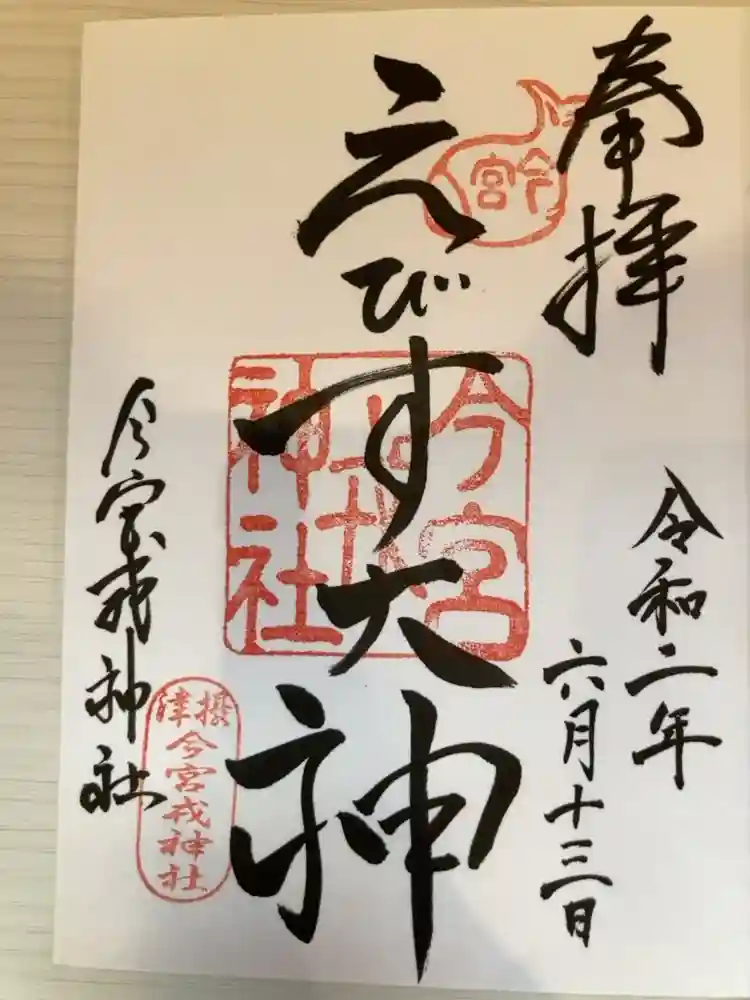 奉拝
令和二年
六月十三日
今宮
えびす大神
今宮戎神社
今宮戎神社
摂津
今宮戎神社